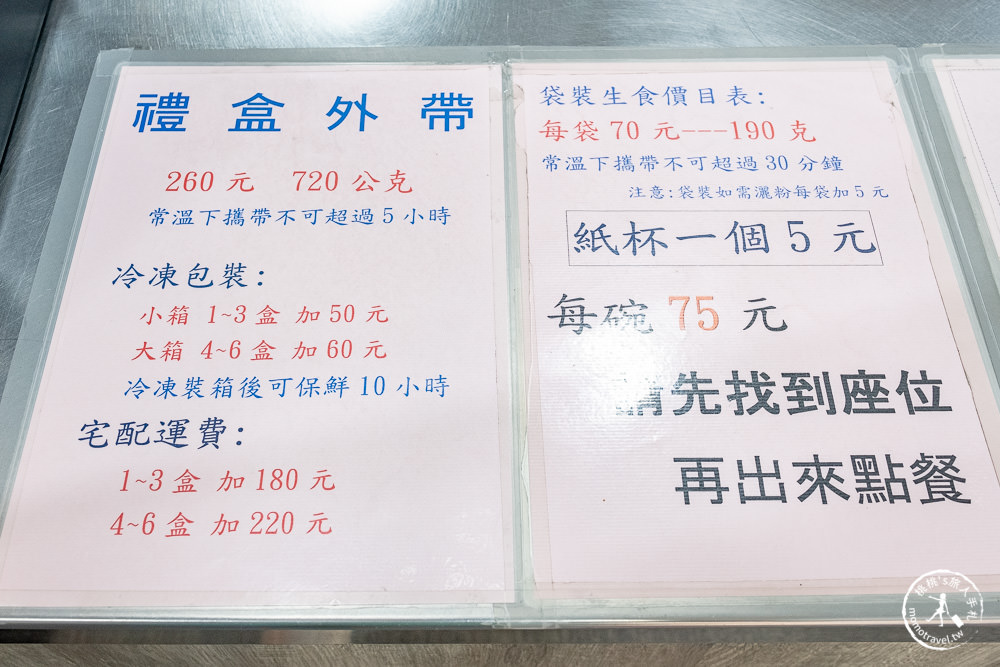 禮盒外帶
260 元 720 公克
常溫下攜帶不可超過 5 小時
冷凍包裝:
小箱 1~3 盒 加 50 元
大箱 4~6 盒 加 60 元
冷凍裝箱後可保鮮 10 小時
宅配運費:
1~3 盒 加 180 元
4~6 盒 加 220 元
袋裝生食價目表:
每袋 70 元---190 克
常溫下攜帶不可超過 30 分鐘
注意:袋裝如需灑粉每袋加 5 元
紙杯一個 5 元
每碗 75 元
請先找到座位
再出來點餐
桃桃's旅人手札
momotravel.tw